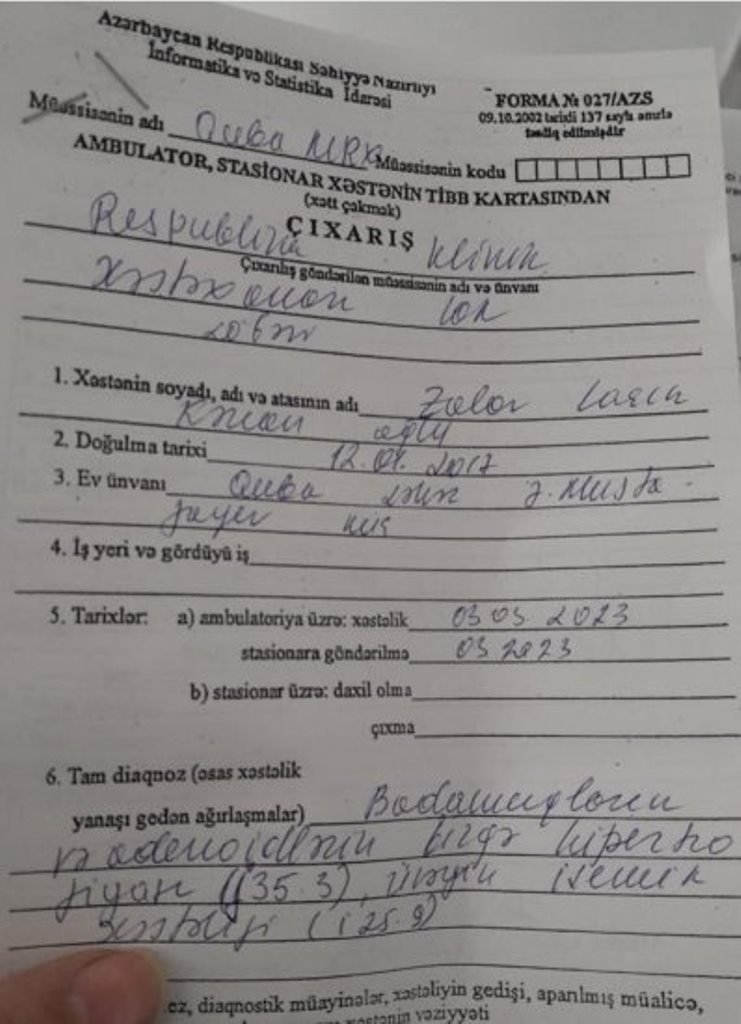 Azərbaycan Respublikası Səhiyyə Nazirliyi
İnformatika və Statistika İdarəsi
FORMA № 027/AZS
09.10.2002 tarixli 137 saylı əmrlə
təsdiq edilmişdir
Müəssisənin adı Quba MRX Müəssisənin kodu
AMBULATOR, STASİONAR XƏSTƏNİN TİBB KARTASINDAN
(xətt çəkmək)
ÇIXARIŞ
Respublika klinik
Çıxarılış göndərilən müəssisənin adı və ünvanı
xəstəxanan LOR
1. Xəstənin soyadı, adı və atasının adı
oğlu
2. Doğulma tarixi 12.01.2017
3. Ev ünvanı Quba ə. Musta-
fayev küç
4. İş yeri və gördüyü iş
5. Tarixlər: a) ambulatoriya üzrə: xəstəlik 03 03 2023
stasionara göndərilmə 03 2023
b) stasionar üzrə: daxil olma
çıxma
6. Tam diaqnoz (əsas xəstəlik
yanaşı gedən ağırlaşmalar) Badamcıqların
və adenoidlərin birgə hipertro
fiyası (J35.3), ürəyin işemik
xəstəliyi (i25.9)
ez, diaqnostik müayinələr, xəstəliyin gedişi, aparılmış müalicə,
xəstənin vəziyyəti